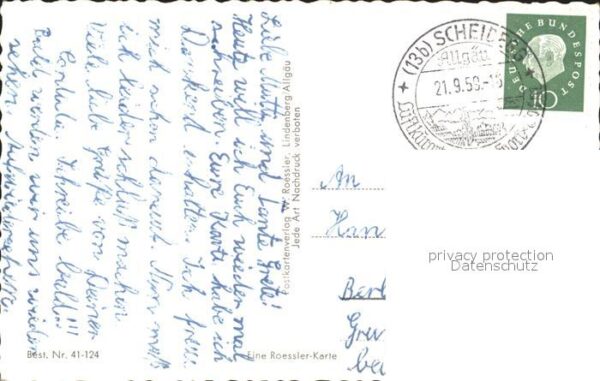 Liebe Mutti, und Tante Grete!
Heute will ich Euch wieder mal
schreiben. Eure Karte habe ich
Dankend erhalten. Ich freue
mich schon darauf. Nun muß
ich leider schluß machen
Viele liebe Grüße von Deiner
Cordula. Schreibe bald!!!
Bald werden wir uns wieder
sehen
Postkartenverlag W. Roessler, Lindenberg Allgäu
Jede Art Nachdruck verboten
Best. Nr. 41-124
Eine Roessler-Karte
(13b) SCHEIDEGG
Allgäu
21.9.59.-16
DEUTSCHE BUNDESPOST
10
An
Berl
privacy protection
Datenschutz